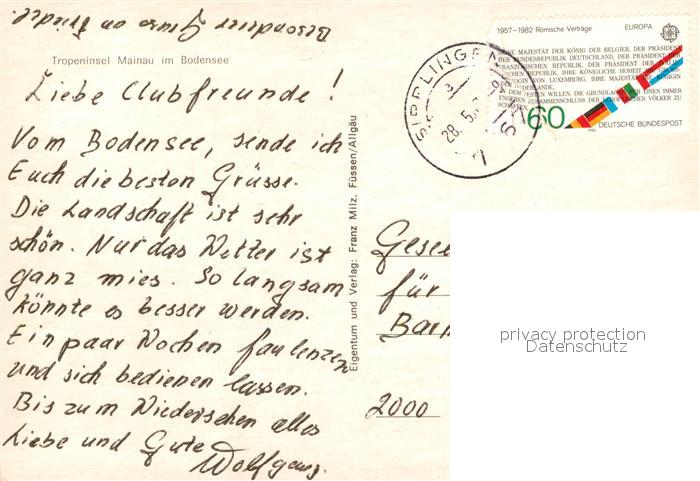 Besonderer Gruss an Friedel.
Tropeninsel Mainau im Bodensee
Liebe Clubfreunde!
Vom Bodensee, sende ich
Euch die besten Grüsse.
Die Landschaft ist sehr
schön. Nur das Wetter ist
ganz mies. So langsam
könnte es besser werden.
Ein paar Wochen faulenzen
und sich bedienen lassen.
Bis zum Wiedersehen alles
Liebe und Gute
Wolfgang.
Eigentum und Verlag: Franz Milz, Füssen/Allgäu
SIPPLINGEN
28.5.
1957-1982 Römische Verträge EUROPA
SEINE MAJESTÄT DER KÖNIG DER BELGIER, DER PRÄSIDENT
DER BUNDESREPUBLIK DEUTSCHLAND, DER PRÄSIDENT
FRANZÖSISCHEN REPUBLIK, DER PRÄSIDENT DER
REPUBLIK, IHRE KÖNIGLICHE HOHEIT
VON LUXEMBURG, IHRE MAJESTÄT KÖNIGIN
DER NIEDERLANDE,
IN DEM FESTEN WILLEN, DIE GRUNDLAGEN EINEN IMMER
ENGEREN ZUSAMMENSCHLUSS DER EUROPÄISCHEN VÖLKER ZU
SCHAFFEN,
60
1982
DEUTSCHE BUNDESPOST
Gesel
für
Barm
2000
privacy protection
Datenschutz